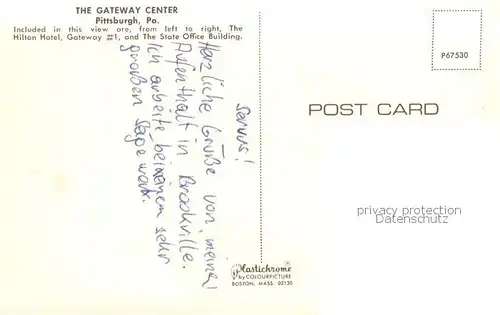 THE GATEWAY CENTER
Pittsburgh, Pa.
Included in this view are, from left to right, The
Hilton Hotel, Gateway #1, and The State Office Building.
P67530
POST CARD
Servus!
Herzliche Grüße von meinem
Aufenthalt in Brookville.
Ich arbeite bei einem sehr
großen Sägewerk.
privacy protection
Datenschutz
Plastichrome®
by COLOURPICTURE
BOSTON, MASS. 02130